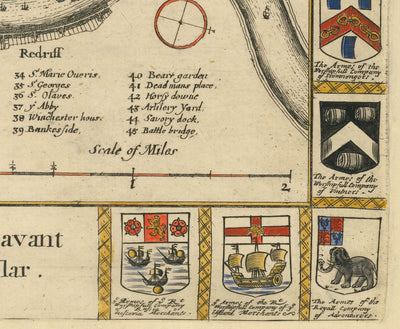 Redriff
34 St. Marie Overis.
35 St. Georges
36 St. Olaves.
37 ye Abby
38 Winchester hous.
39 Bankesside.
40 Beare garden
41 Dead mans place.
42 Horsy downe
43 Artilery Yard.
44 Savory dock.
45 Battle bridge.
Scale of Miles
1
2
avant
lar.
The Armes of the
Worshipfull Company
of
The Armes of the
Worshipfull Company
of Vintners.
The Armes of the
Royall Company
of Adventurers.
Armes of ye
Company
Merchants.
Armes of the
Company of ye
Merchants